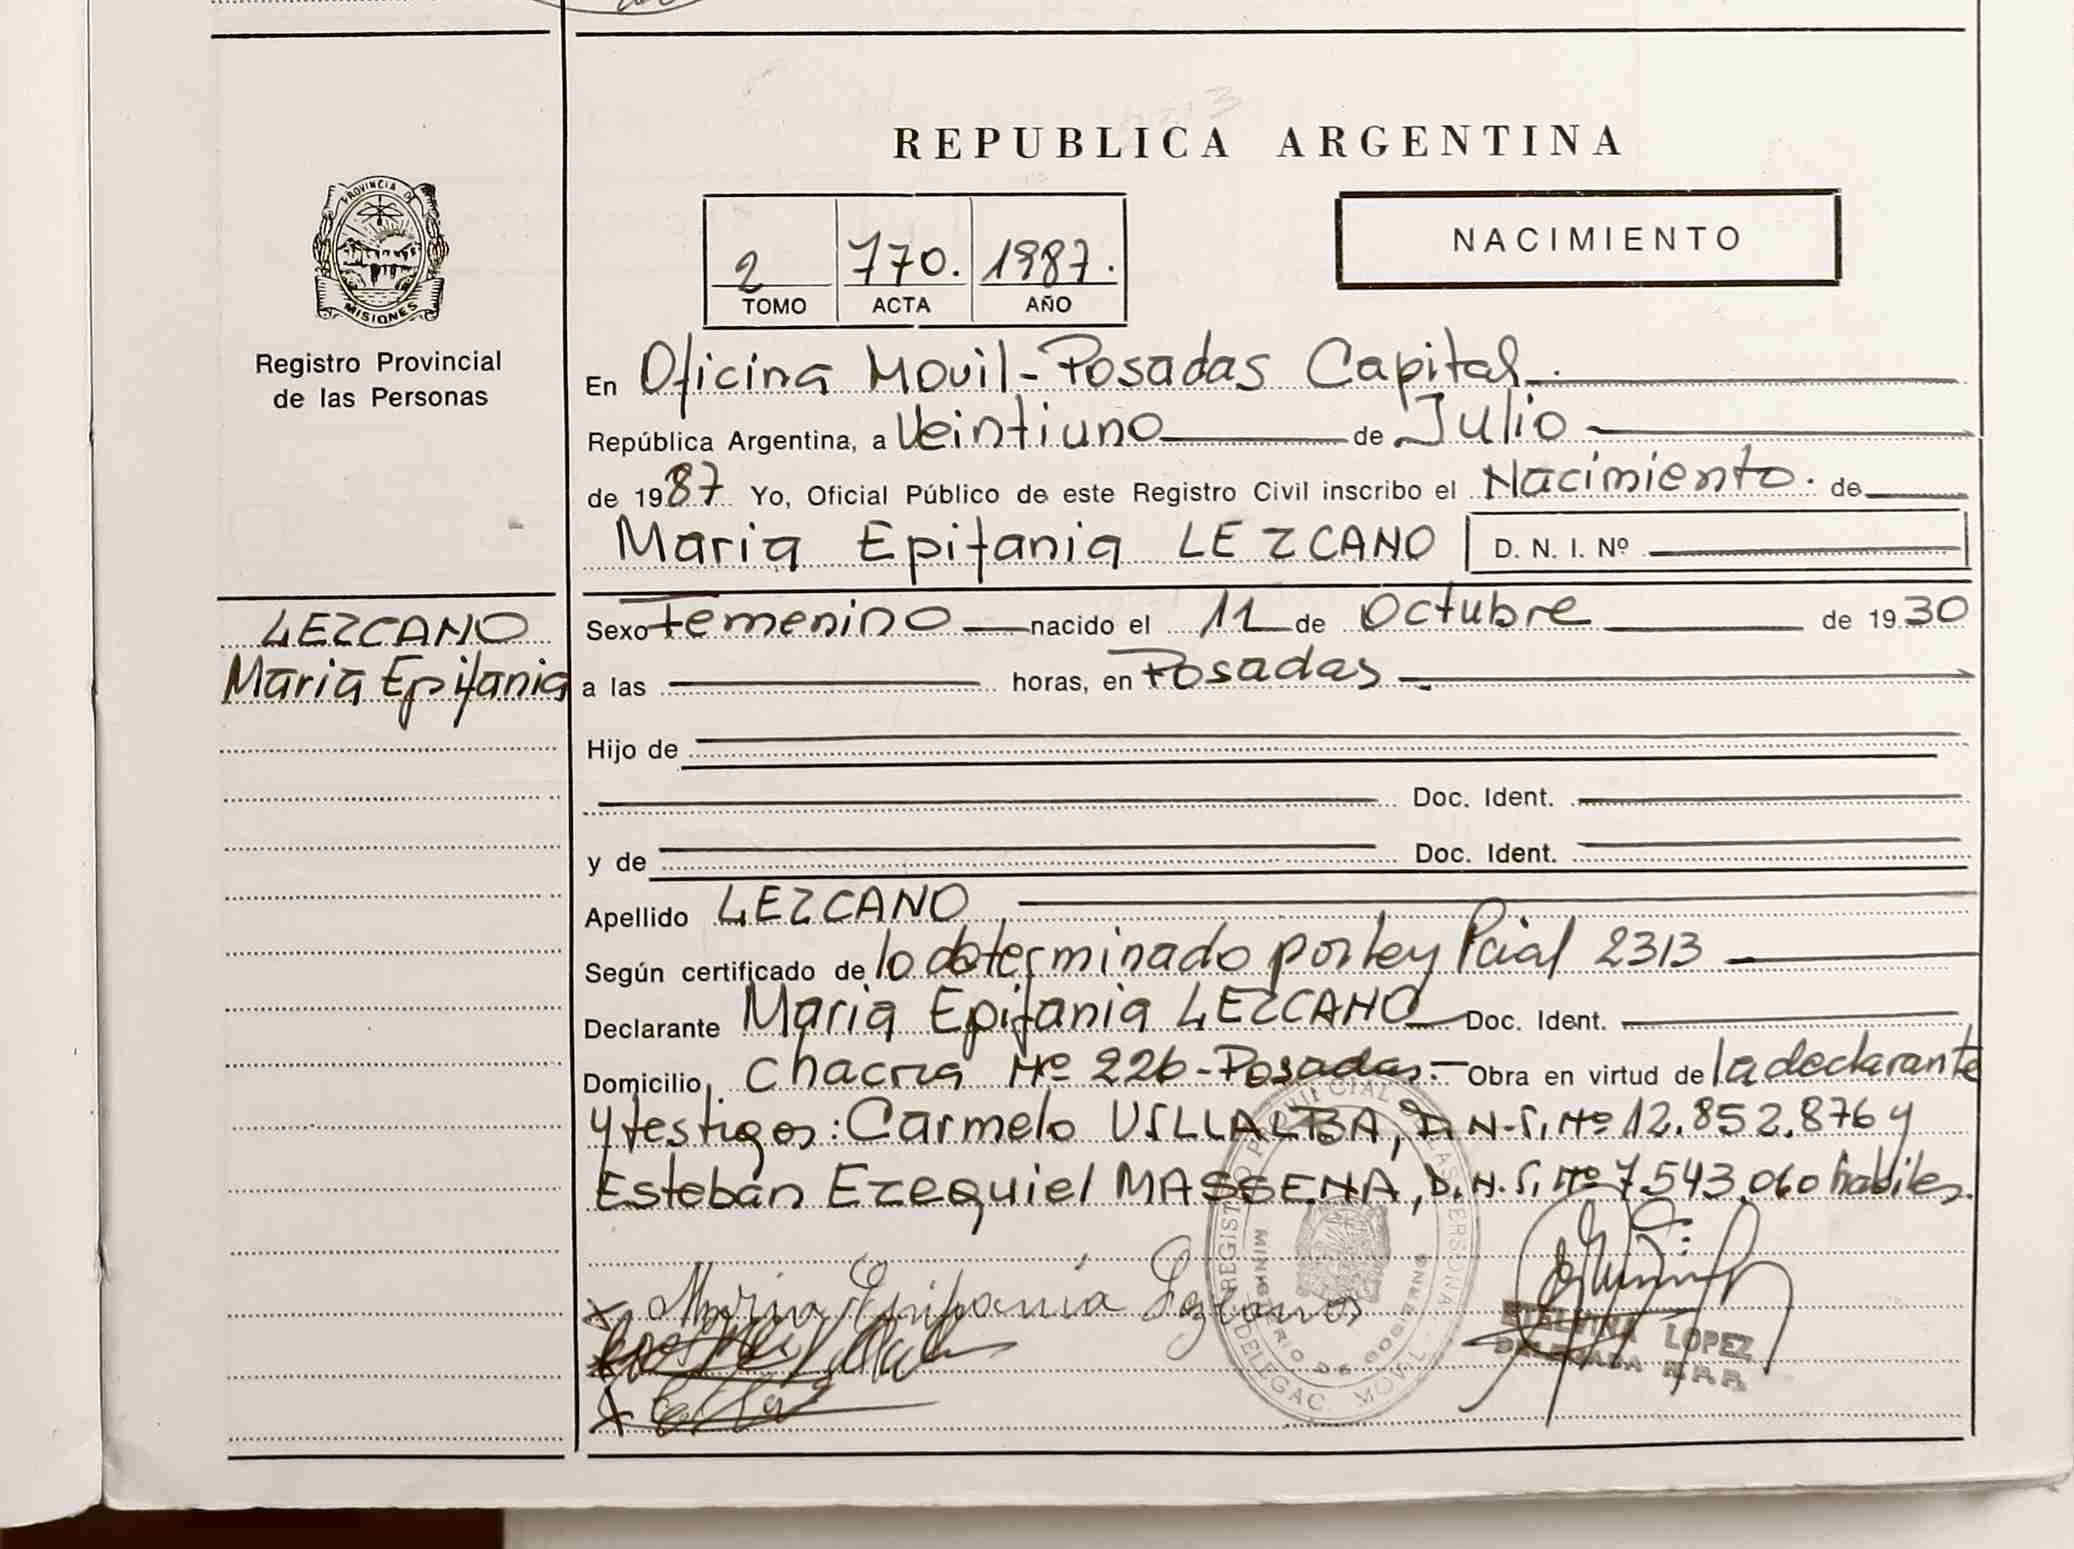 REPUBLICA ARGENTINA
NACIMIENTO
2 770. 1987.
TOMO ACTA AÑO
PROVINCIA DE
MISIONES
Registro Provincial
de las Personas
En Oficina Movil - Posadas Capital.
República Argentina, a Veintiuno de Julio
de 1987 Yo, Oficial Público de este Registro Civil inscribo el Nacimiento. de
Maria Epifania LEZCANO D. N. I. Nº
LEZCANO
Maria Epifania
Sexo Femenino nacido el 11 de Octubre de 1930
a las horas, en Posadas
Hijo de
Doc. Ident.
y de Doc. Ident.
Apellido LEZCANO
Según certificado de lo determinado por ley Pcial 2313
Declarante Maria Epifania LEZCANO Doc. Ident.
Domicilio, Chacra Nº 226 - Posadas. - Obra en virtud de la declarante
y testigos: Carmelo VILLALBA, D.N.I. Nº 12.852.876 y
Esteban Ezequiel MASSENA, D.N.I. Nº 7.543.060 habiles.
REGISTRO PROVINCIAL DE LAS PERSONAS
MINISTERIO DE GOBIERNO
DELEGAC. MOVIL
x Maria Epifania Lezcano
ETELVINA LOPEZ
DELEGADA R.P.P.